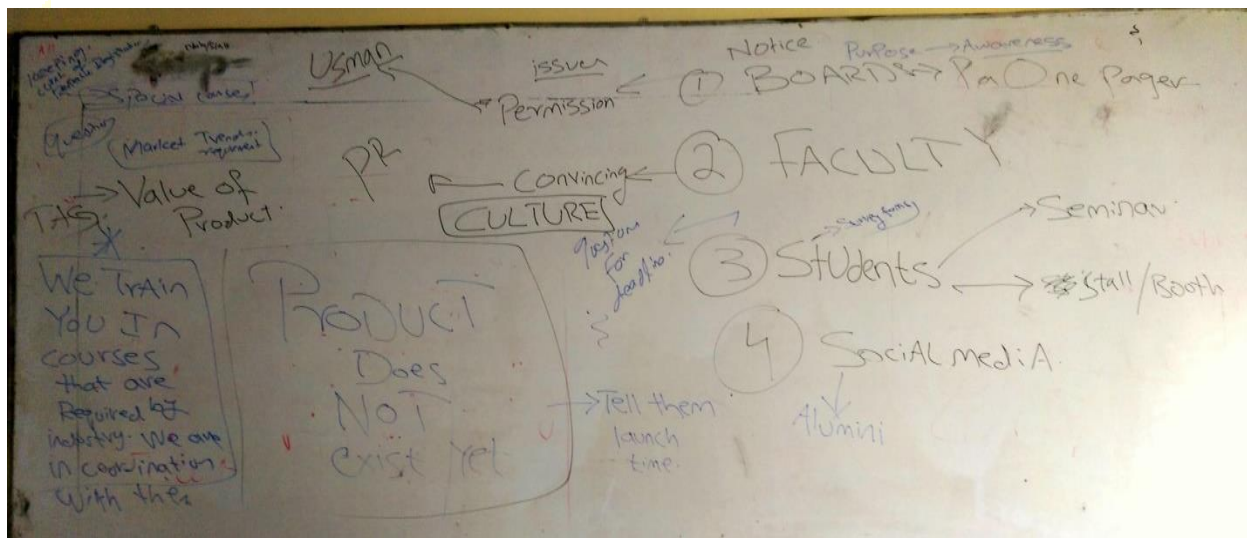 All
Keeping
Usman
issues
Permission
Notice
Purpose → Awareness
① BOARDS → One Pager
Question
Market Trend
→ Value of
Product
TAG
PR
Convincing
CULTURE
② FACULTY
③ Students
Seminar
Stall/Booth
④ Social media
Alumini
We Train
You In
courses
that are
Required by
industry. We are
in coordination
with the
PRODUCT
Does
NOT
exist Yet
→ Tell them
launch
time.
for